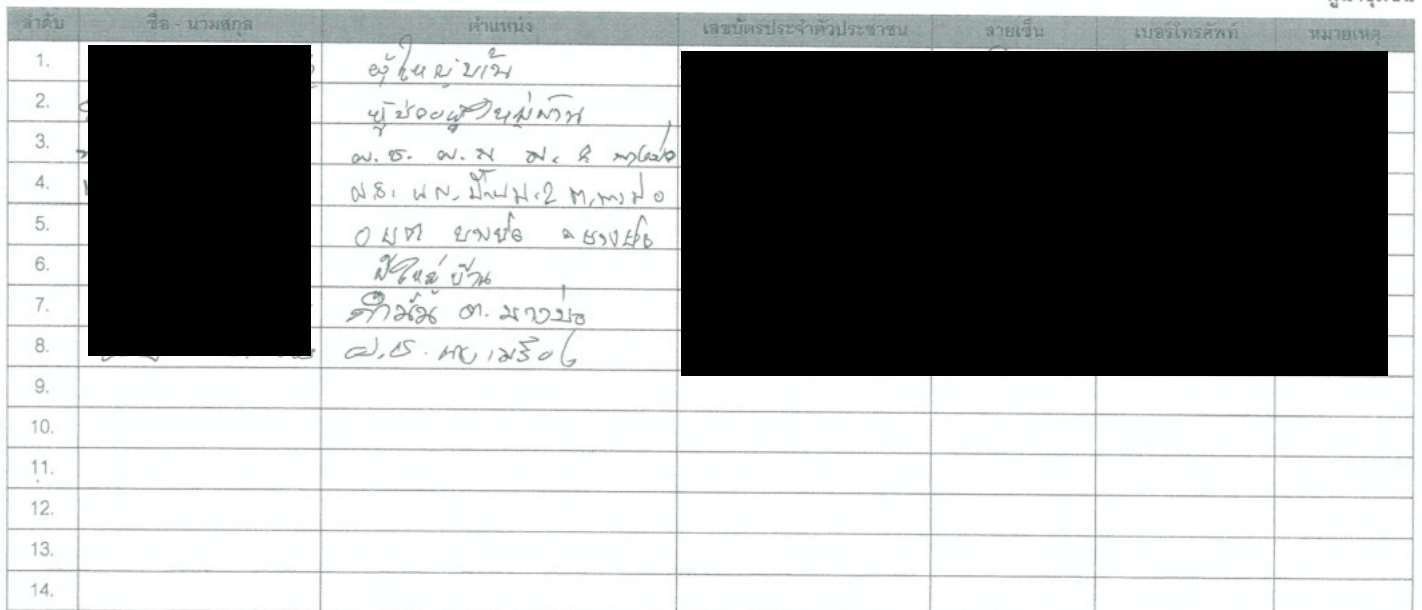 ลำดับ ชื่อ - นามสกุล ตำแหน่ง เลขบัตรประจำตัวประชาชน ลายเซ็น เบอร์โทรศัพท์ หมายเหตุ
1. ผู้ใหญ่บ้าน
2. ผู้ช่วยผู้ใหญ่บ้าน
3. ผ.ช. ผ.ญ ม.
4. ผ.ช. ม.2 ต.บางบ่อ
5. อบต บางบ่อ อ บางบ่อ
6. ผู้ใหญ่บ้าน
7. กำนัน ต. บางบ่อ
8. ผ.ช.
9.
10.
11.
12.
13.
14.